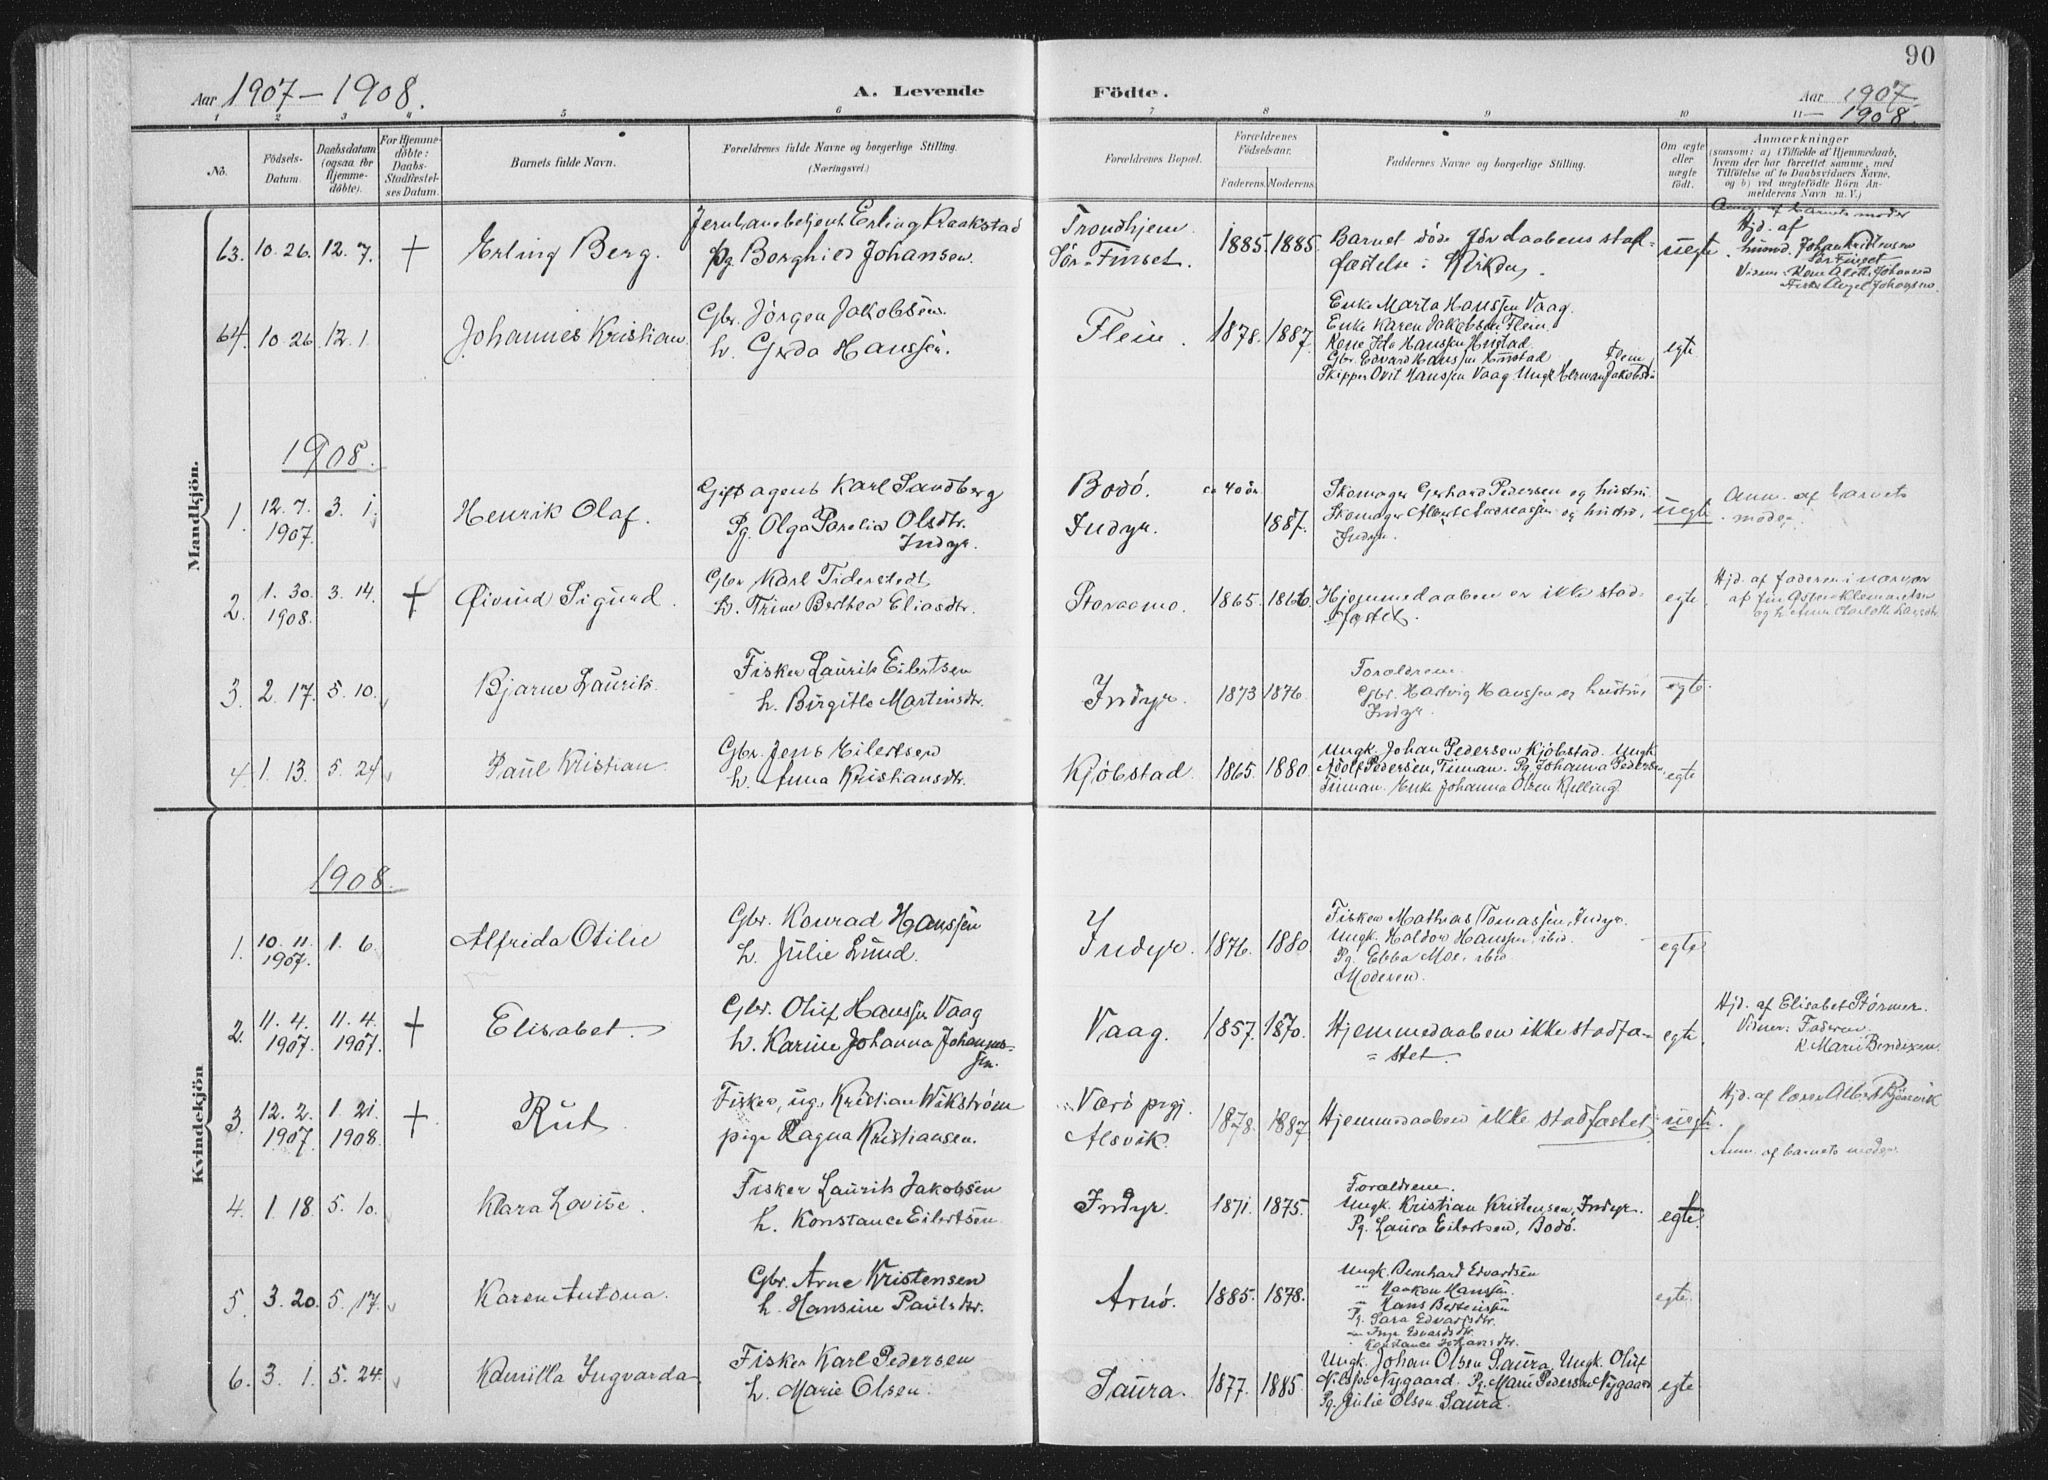 90
Aar 1907-1908. A. Levende Födte. Aar 1907
- 1908.
1 2 3 4 5 6 7 8 9 10 11
No. Födsels-Datum. Daabsdatum (ogsaa for Hjemmedöbte). For Hjemmedöbte: Daabs Stadfæstelses Datum. Barnets fulde Navn. Forældrenes fulde Navne og borgerlige Stilling. (Næringsvei.) Forældrenes Bopæl. Forældrenes Födselsaar. Faderens. Moderens. Faddernes Navne og borgerlige Stilling. Om ægte eller uægte födt. Anmærkninger
(saasom: a) i Tilfælde af Hjemmedaab,
hvem der har forrettet samme, med
Tilföielse af to Daabsvidners Navne,
og b) ved uægtefödte Börn Anmelderens Navn m. V.)
Mandkjön.
63. 10.26. 12.7. + Erling Berg.
Jernbanebetjent Erling Kraakstad
pg Borghild Johansen.
Trondhjem
Sör-Finset.
1885. 1885.
Barnet döde för daabens stad-
fæstelse i Kirken.
uegte.
Anm. af barnets moder
Hjd. af
64. 10.26 12.1. Johannes Kristian
Gbr. Jörgen Jakobsen
h. Gerda Hanssen.
Flein. 1878. 1887.
Enke Marta Hanssen Vaag.
Enke Karen Jakobsen Flein.
Kone Ida Hanssen Hustad
Gbr. Edvard Hanssen Hustad Flein
Skipper Ovit Hanssen Vaag Ungk Herman Jakobsen
egte
1908.
1. 12.7. 1907. 3.1. Henrik Olaf.
Gift agent Karl Sandberg
Pg. Olga Parelia Olsdtr.
Indyr.
Bodö.
Indyr.
ca 40 år.
1887.
Skomager Gerhard Pedersen og hustru.
Skomager Albert Andreassen og hustru,
Indyr.
uegte
Anm. af barnets
moder
2. 1.30. 1908. 3.14. + Øivind Sigurd.
Gbr Karl Tiderstedt
h. Trine Berthea Eliasdtr.
Storamo. 1865. 1866.
Hjemmedaaben er ikke stad-
fæstet.
egte.
Hjd. af faderen i nærvær
3. 2.17. 5.10. Bjarne Laurits.
Fisker Laurits Eilertsen
h. Birgitte Martinsdtr.
Indyr. 1873 1876.
Forældrene.
Gbr. Hartvig Hanssen og hustru
Indyr.
egte.
4. 1.13. 5.24 Paul Kristian.
Gbr. Jens Eilertsen
h. Anna Kristiansdtr.
Kjöbstad. 1865. 1880
Ungk. Johan Pedersen Kjöbstad. Ungk.
Adolf Pedersen, Finnan. Pg. Johanna Pedersen
Finnan. Enke Johanna Olsen Kjelling
egte
Kvindekjön
1908.
1. 10.11. 1907. 1.6. Alfrida Otilie
Gbr. Konrad Hanssen
h. Julie Lund.
Indyr. 1876. 1880
Fisker Mathias Tomassen, Indyr.
Ungk. Haldor Hanssen ibid.
Pg. Ebba Moe, ibid.
Moderen.
egte
2. 11.4. 1907. 11.4. 1907. + Elisabet.
Gbr. Oluf Hanssen Vaag
h. Karine Johanna Johannes-
sen.
Vaag. 1857. 1870.
Hjemmedaaben ikke stadfæ-
stet.
egte.
Hjd. af Elisabet Störmer.
Vidner: Faderen
K. Marie Bendixen.
3. 12.2. 1907 1.21. 1908. + Rut.
Fisker, ug. Kristian Wikström
pige Ragna Kristiansen.
Værö prgj.
Alsvik.
1878. 1887
Hjemmedaaben ikke stadfæstet. uegte.
Anm. af barnets moder.
4. 1.18. 5.10. Klara Lovise.
Fisker Laurits Jakobsen
h. Konstance Eilertsen
Indyr. 1871. 1875.
Forældrene.
Ungk. Kristian Kristensen, Indyr.
Pg. Laura Eilertsen, Bodö.
egte.
5. 3.20. 5.17. Karen Antona.
Gbr. Arne Kristensen
h. Hansine Paulsdtr.
Arnö. 1885. 1878.
Ungk. Bernhard Edvardsen
" Haakon Hanssen.
" Hans Berteussen
Pg. Sara Edvardsdtr.
" Inga Edvardsdtr.
" Konstance Johansdtr.
egte.
6. 3.1. 5.24. Kamilla Ingvarda
Fisker Karl Pedersen
h. Marie Olsen.
Saura. 1877. 1885.
Ungk. Johan Olsen Saura, Ungk. Oluf
Nilsen Nygaard. Pg. Marie Pedersen Nygaard
Pg. Julie Olsen Saura.
egte